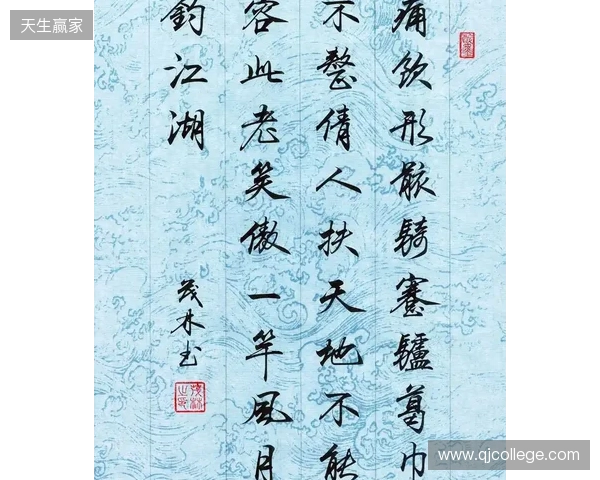 天生赢家
痛飲形骸騎蹇驢葛巾
不整倩人扶天地不能
容此老笑傲一竿風月
釣江湖
茂林书
www.qjcollege.com